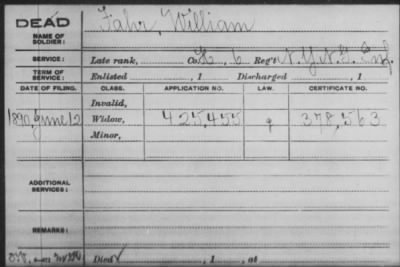 DEAD
NAME OF SOLDIER: Fahr, William
SERVICE: Late rank, Co. , 6 Reg't N.Y.N.G. Inf.
TERM OF SERVICE: Enlisted , 1 Discharged , 1
DATE OF FILING. CLASS. APPLICATION NO. LAW. CERTIFICATE NO.
Invalid,
1890, June 12 Widow, 425,455 378,563
Minor,
ADDITIONAL SERVICES:
REMARKS:
Died , 1 , at